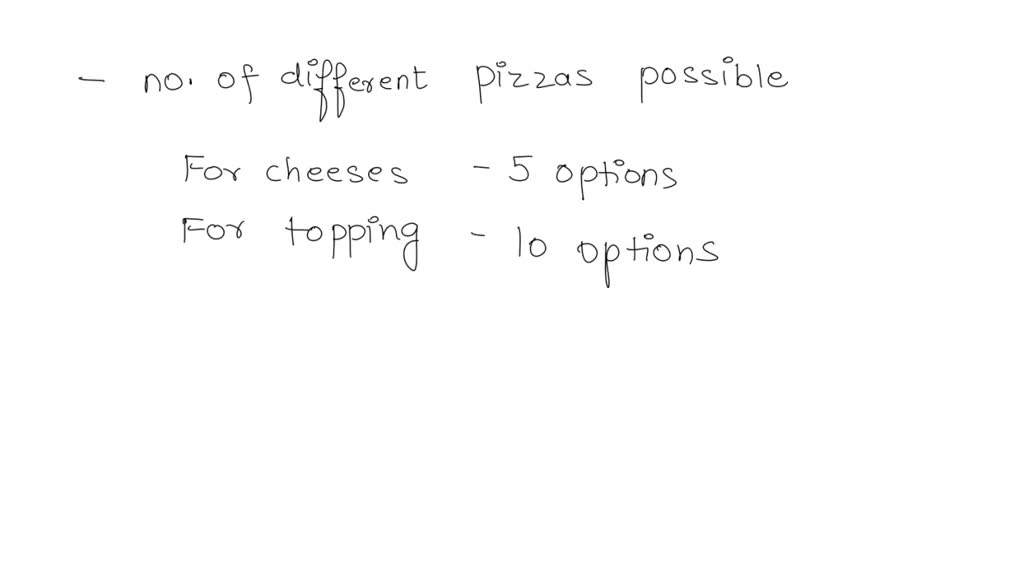 - no. of different pizzas possible
For cheeses - 5 options
For topping - 10 options